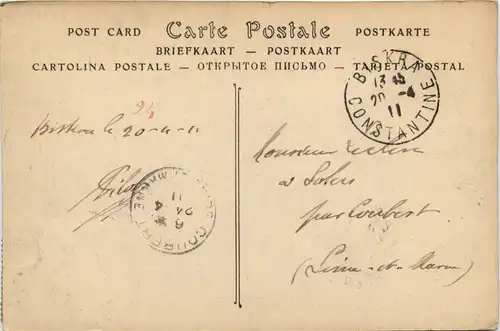 POST CARD Carte Postale POSTKARTE
BRIEFKAART — POSTKAART
CARTOLINA POSTALE — ОТКРЫТОЕ ПИСЬМО — TARJETA POSTAL
BISKRA
13 15
20 -4
11
CONSTANTINE
94
Biskra le 20-4-11
Monsieur
à Solers
par Coubert
(Seine-et-Marne)
COUBERT
6
24 4
11